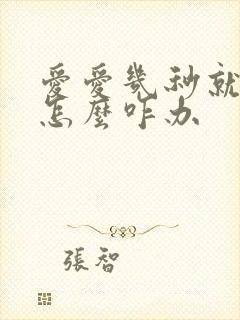 愛愛幾秒就
怎麼咋办
張智